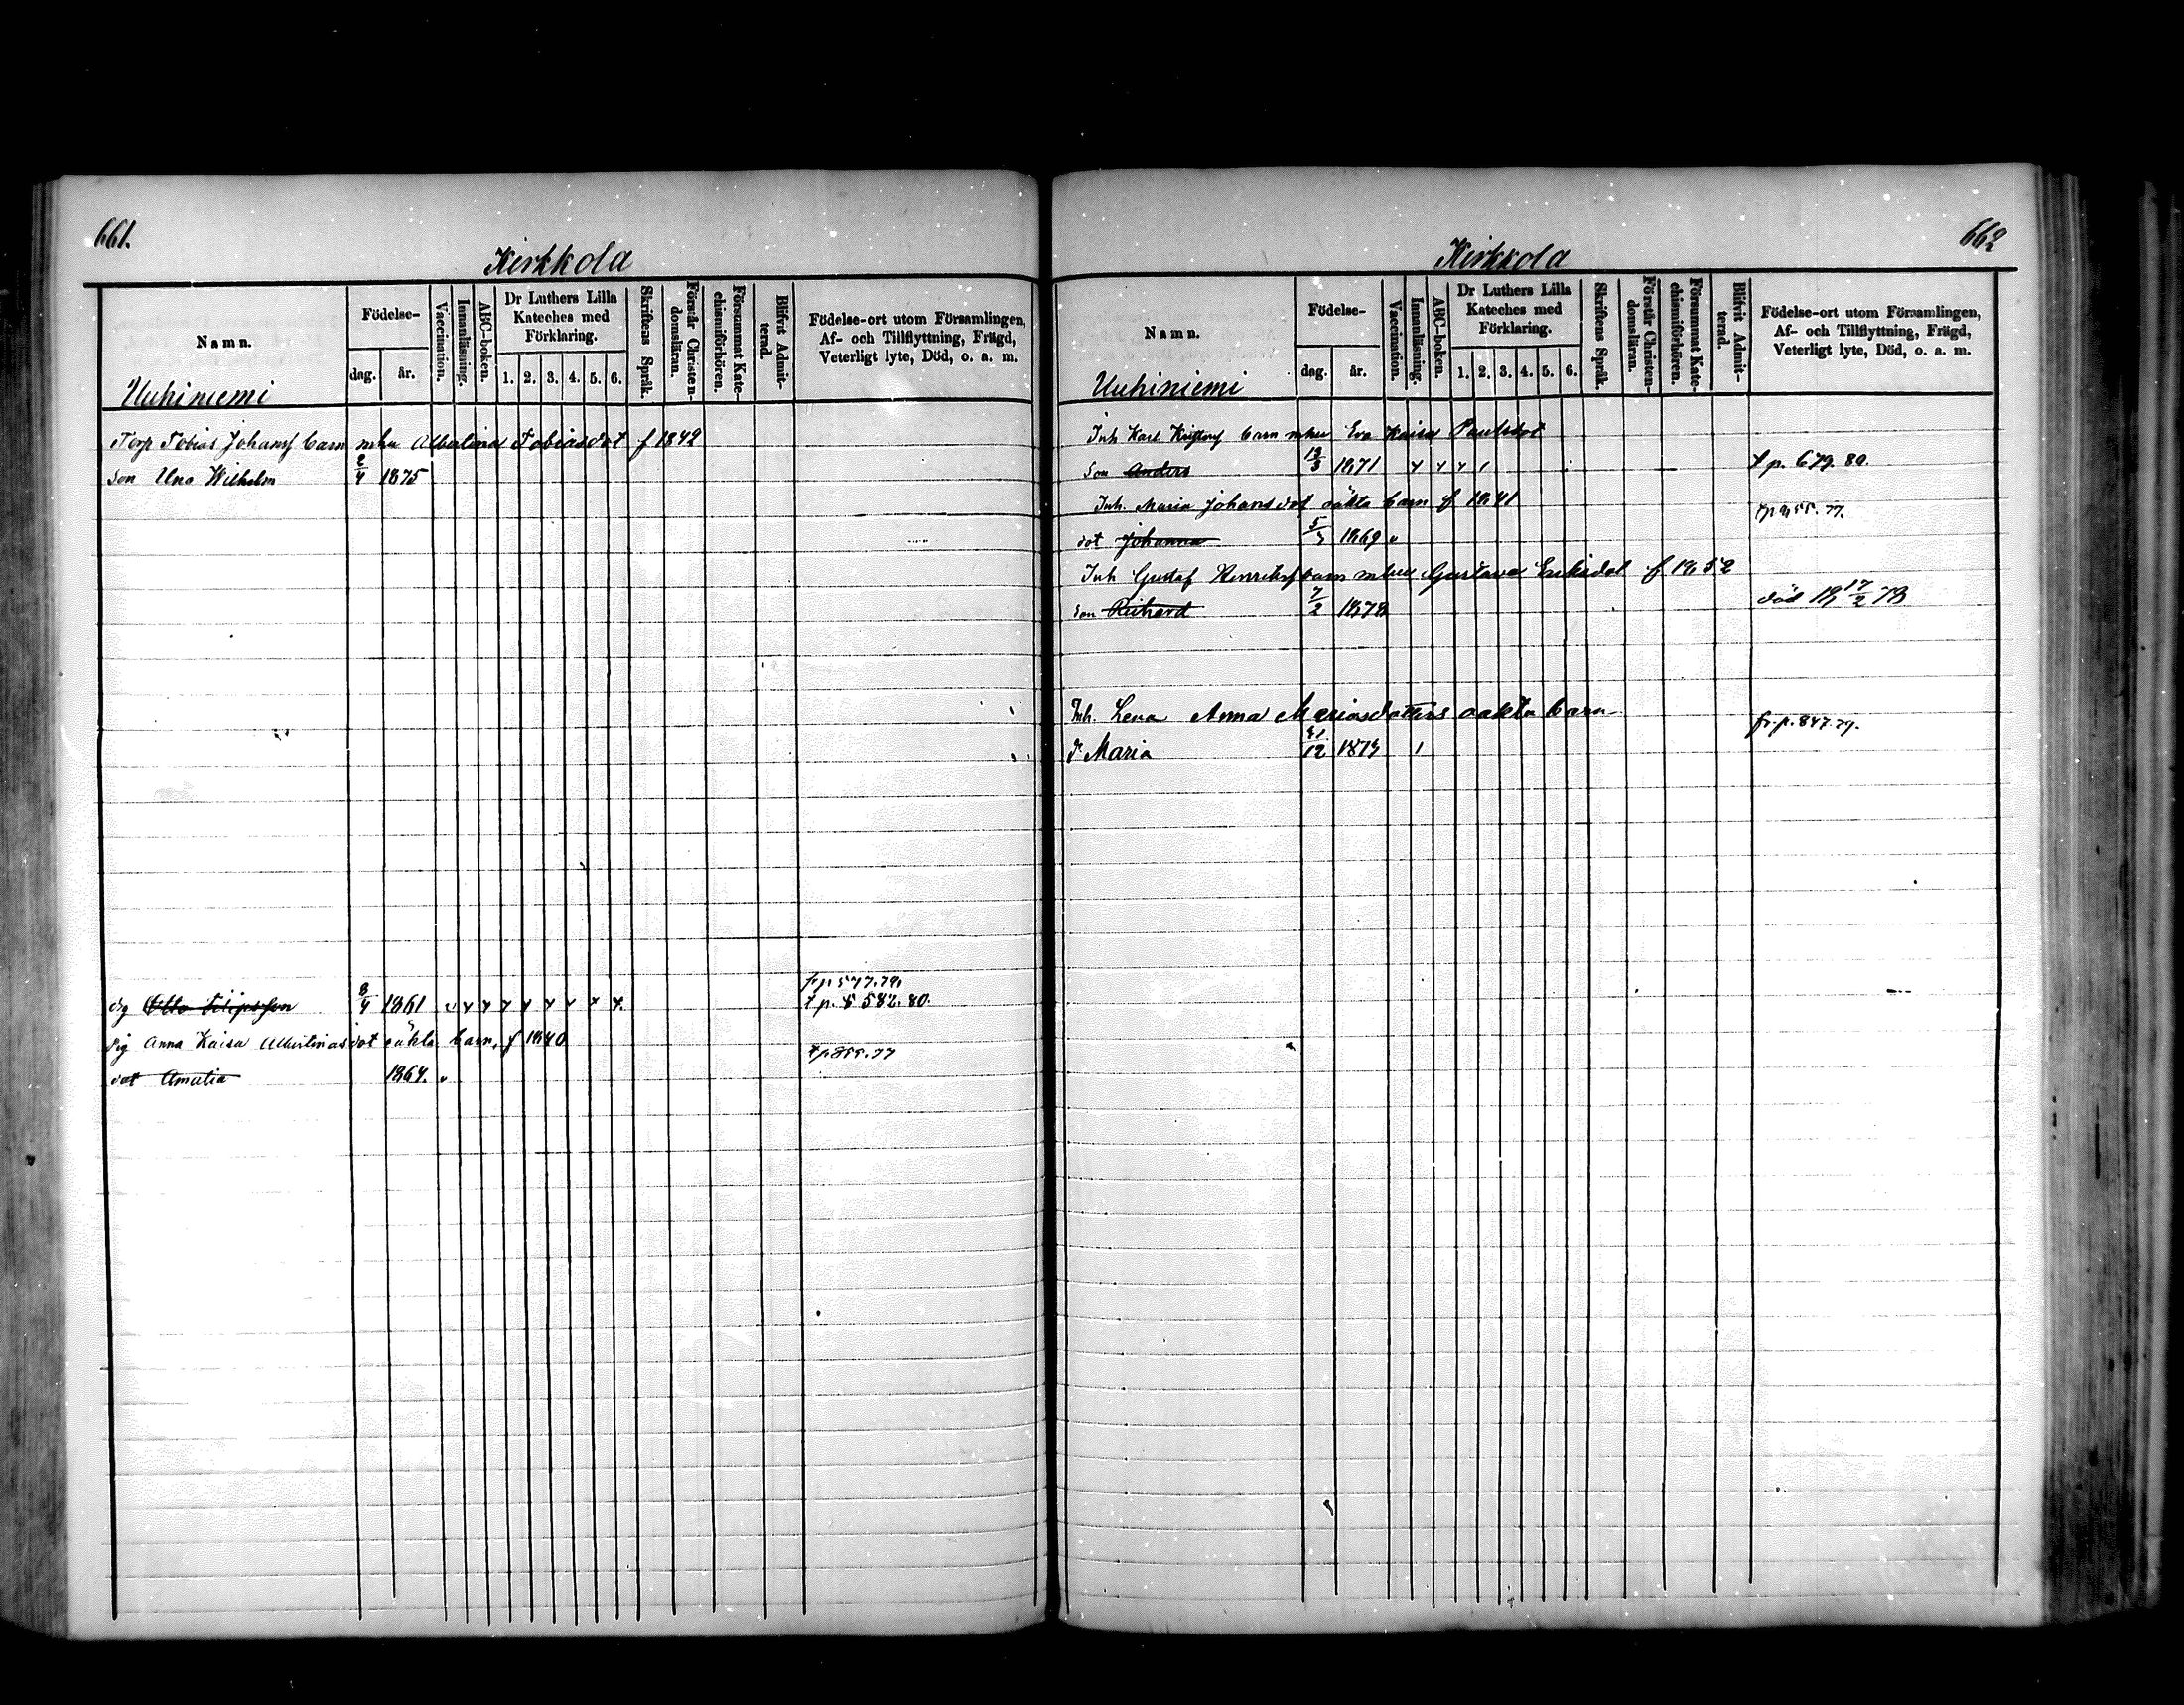 661.
Kirkkola
Namn.
Födelse-
dag.
år.
Vaccination.
Innanläsning.
ABC-boken.
Dr Luthers Lilla
Kateches med
Förklaring.
1. 2. 3. 4. 5. 6.
Skriftens Språk.
Förstår Christen-
domsläran.
Försummat Kate-
chismiförhören.
Blifvit Admit-
terad.
Födelse-ort utom Församlingen,
Af- och Tillflyttning, Frägd,
Veterligt lyte, Död, o. a. m.
Uuhiniemi
Torp Tobias Johanss barn mhu Albertina Tobiasdot f 1842
Son Uno Wilhelm 2/4 1875
fr p 577.79.
drg Otto Filipsson 8/4 1861 t p. 582. 80.
pig Anna Kaisa Albertinasdot oäkta barn, f 1840
dot Amalia 1864.
662
Kirkkola
Namn.
Födelse-
dag.
år.
Vaccination.
Innanläsning.
ABC-boken.
Dr Luthers Lilla
Kateches med
Förklaring.
1. 2. 3. 4. 5. 6.
Skriftens Språk.
Förstår Christen-
domsläran.
Försummat Kate-
chismiförhören.
Blifvit Admit-
terad.
Födelse-ort utom Församlingen,
Af- och Tillflyttning, Frägd,
Veterligt lyte, Död, o. a. m.
Uuhiniemi
Inh Karl barn mhu Eva Kaisa Paulsdot
Son Anders 1871 t p. 679. 80.
Inh. Maria Johansdot oäkta barn f 1841
dot Johanna 1869
Inh Gustaf Henrikss barn mhu Gustava Eriksdot f 1852
Son Richard 7/2 1878 död 18 17/2 78
Inh. Lena Anna Mariasdotters oäkta barn
d. Maria 31/12 1873 fr. p. 847. 79.